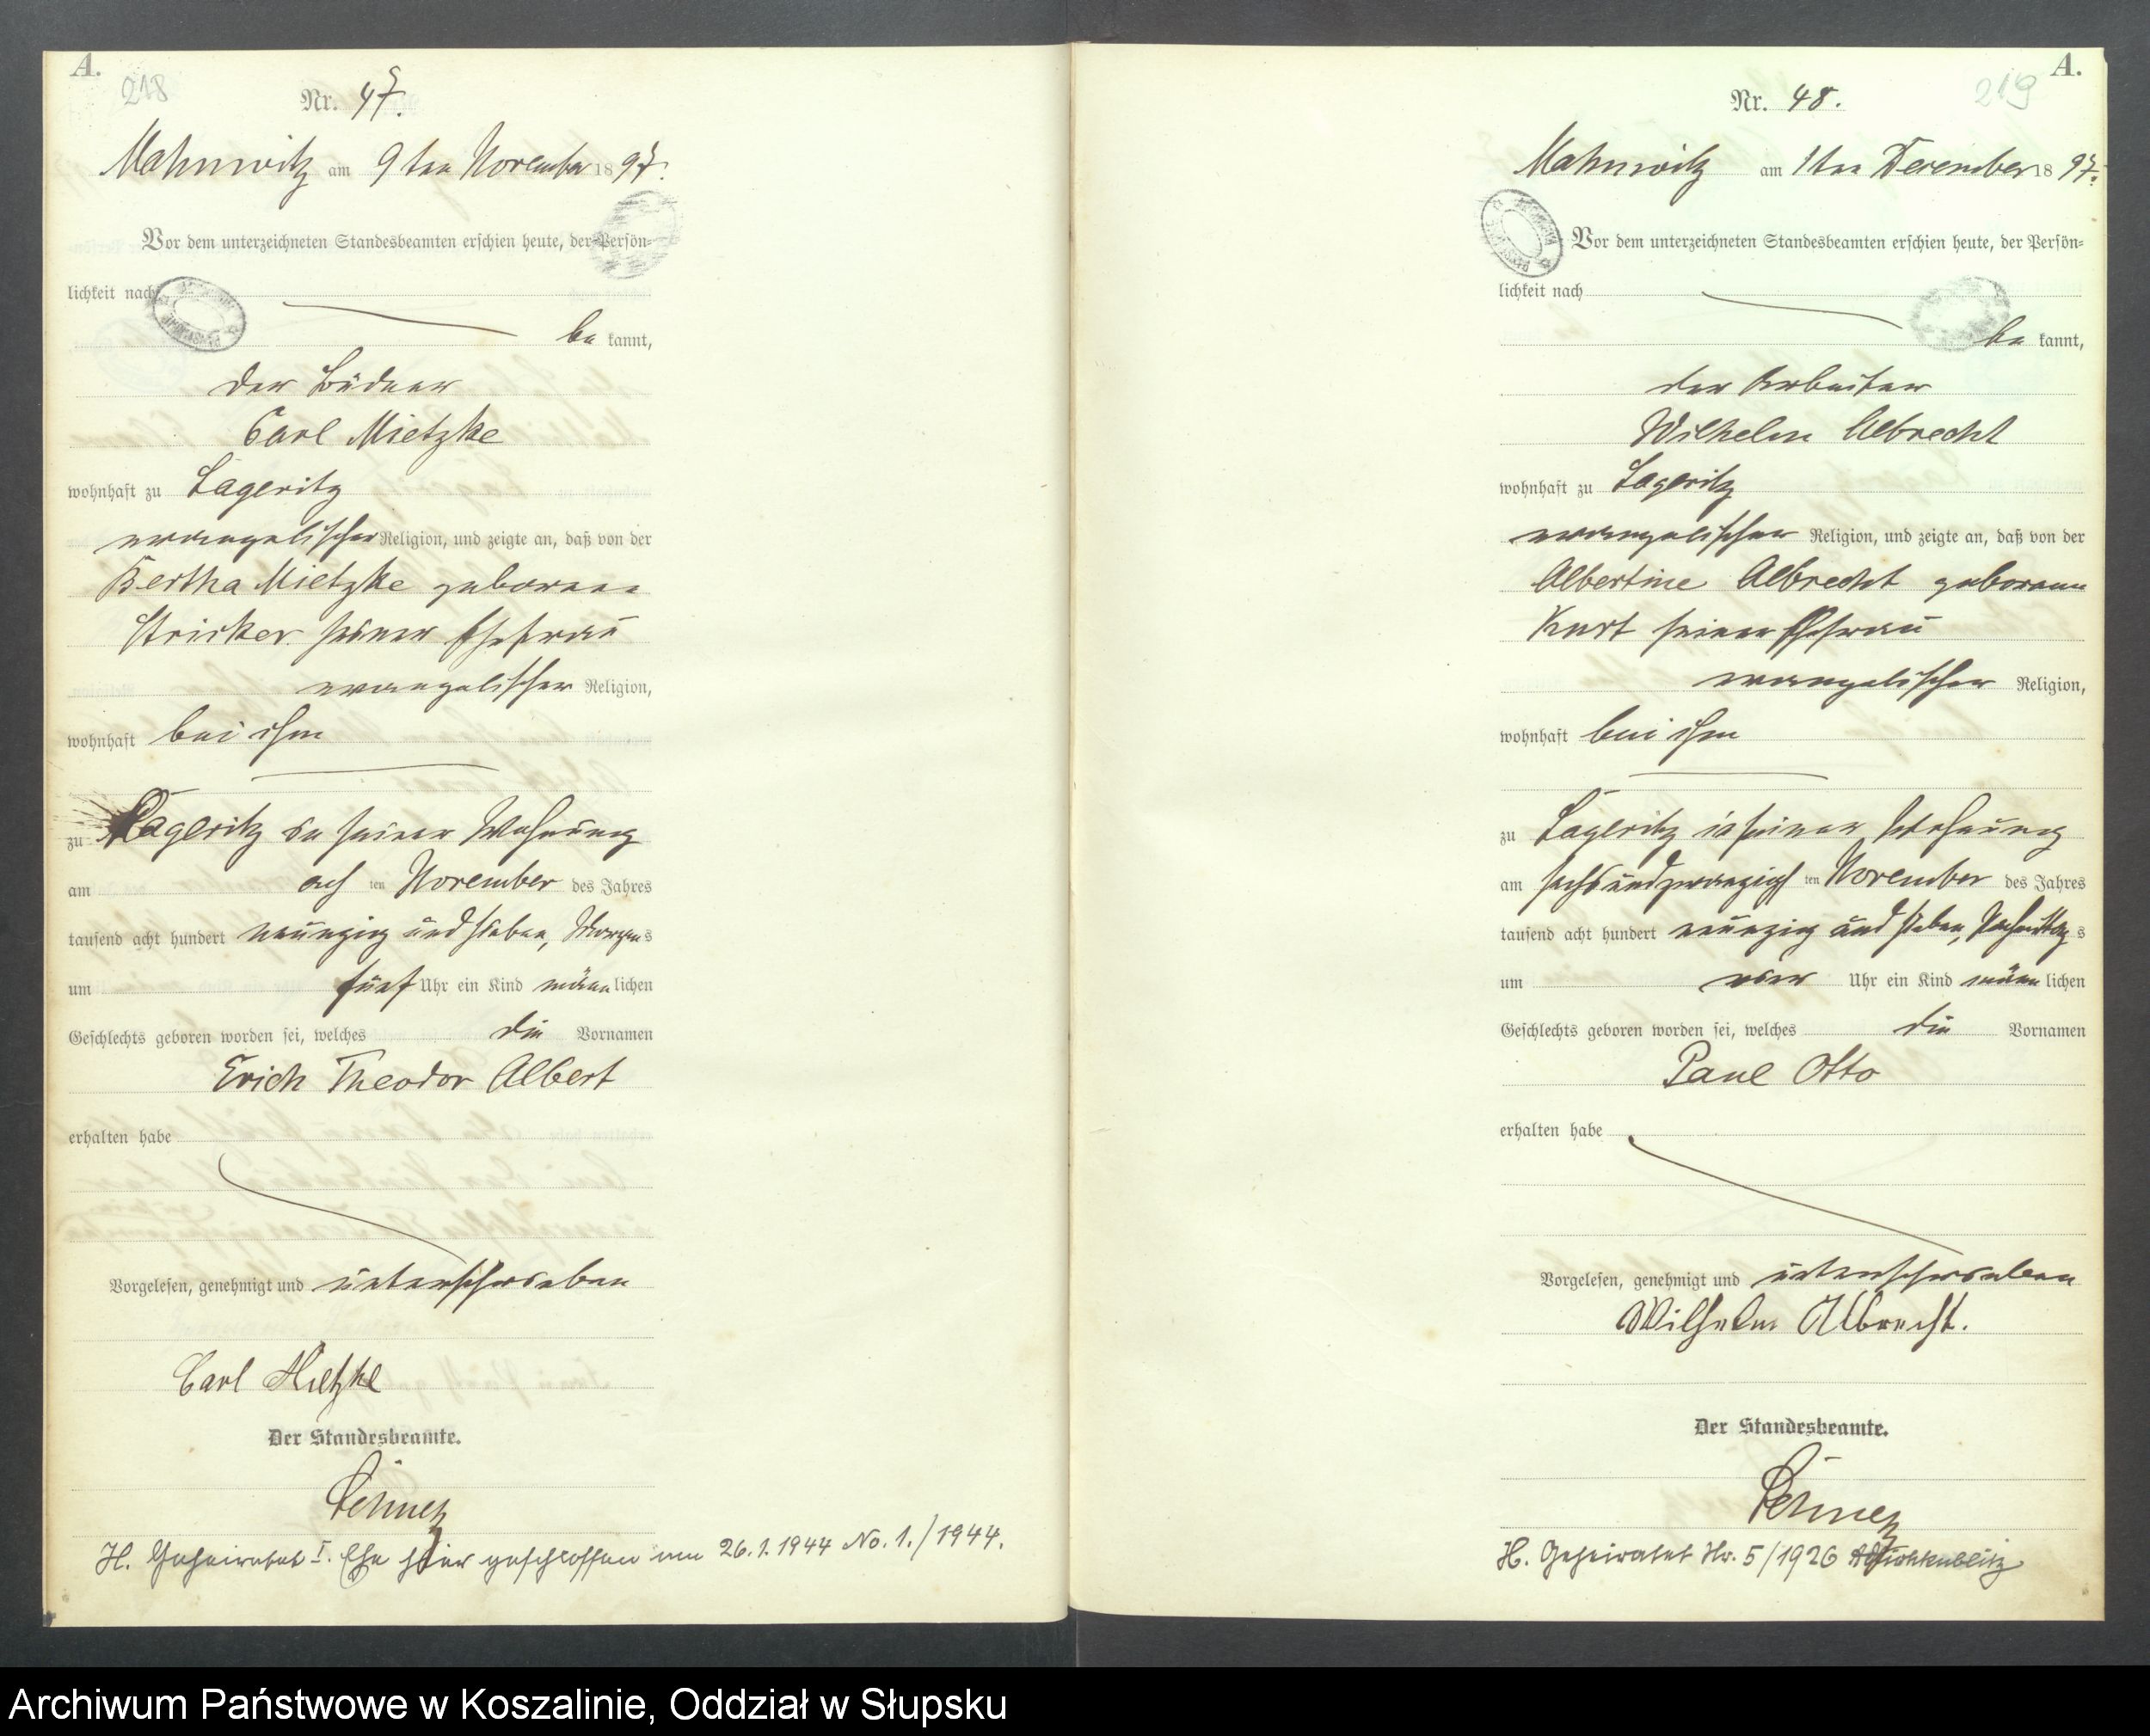 A.
218
Nr. 47.
Mahnwitz am 9ten November 1897.
Vor dem unterzeichneten Standesbeamten erschien heute, der Persön-
lichkeit nach
be kannt,
der Büdner
Carl Mietzke
wohnhaft zu Lageritz
evangelischer Religion, und zeigte an, daß von der
Bertha Mietzke geborene
Stricker seiner Ehefrau
evangelischer Religion,
wohnhaft bei ihm
zu Lageritz in seiner Wohnung
am ach ten November des Jahres
tausend acht hundert neunzig und sieben, Morgens
um fünf Uhr ein Kind männlichen
Geschlechts geboren worden sei, welches die Vornamen
Erich Theodor Albert
erhalten habe
Vorgelesen, genehmigt und unterschrieben
Carl Mietzke
Der Standesbeamte.
H. Geheiratet I. Ehe hier geschlossen am 26.1.1944 No. 1./1944.
A.
219
Nr. 48.
Mahnwitz am 1ten December 1897.
Vor dem unterzeichneten Standesbeamten erschien heute, der Persön-
lichkeit nach
be kannt,
der Arbeiter
Wilhelm Albrecht
wohnhaft zu Lageritz
evangelischer Religion, und zeigte an, daß von der
Albertine Albrecht geborene
Kurt seiner Ehefrau
evangelischer Religion,
wohnhaft bei ihm
zu Lageritz in seiner Wohnung
am sechsundzwanzigs ten November des Jahres
tausend acht hundert neunzig und sieben, Nachmittags
um vier Uhr ein Kind männlichen
Geschlechts geboren worden sei, welches die Vornamen
Paul Otto
erhalten habe
Vorgelesen, genehmigt und unterschrieben
Wilhelm Albrecht.
Der Standesbeamte.
H. Geheiratet Nr. 5/1926
Archiwum Państwowe w Koszalinie, Oddział w Słupsku